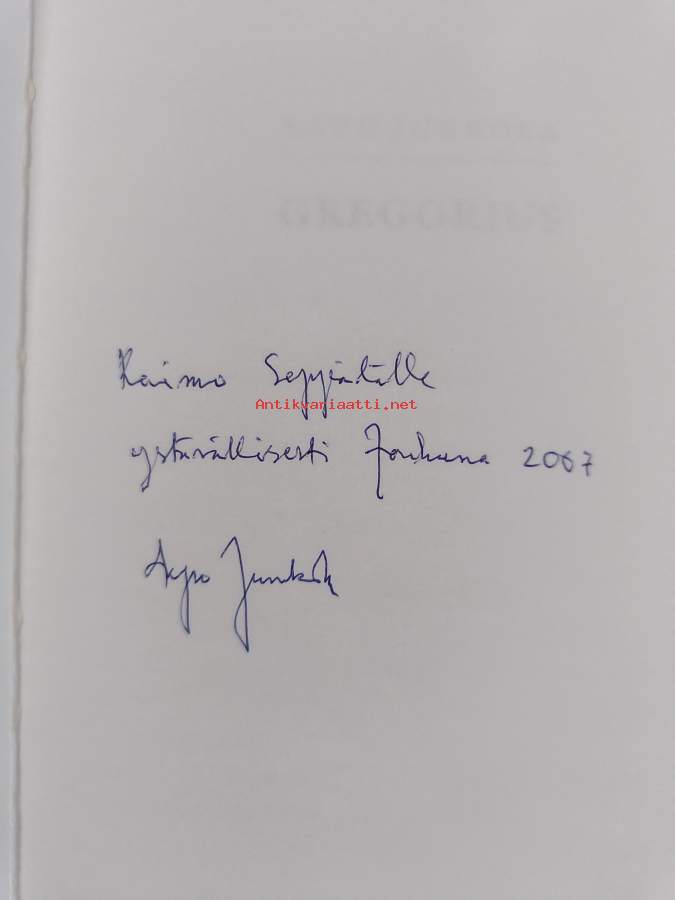 GREGORIUS
Raimo Seppälälle
Antikvariaatti.net
ystävällisesti Jouluna 2007
Arvo Junkola